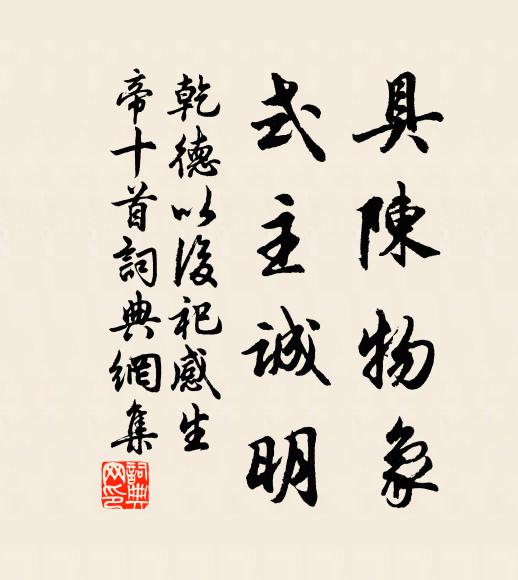 具陳物象
式主誠明
乾德以後祀感生
帝十首詞典網集
詞典網印